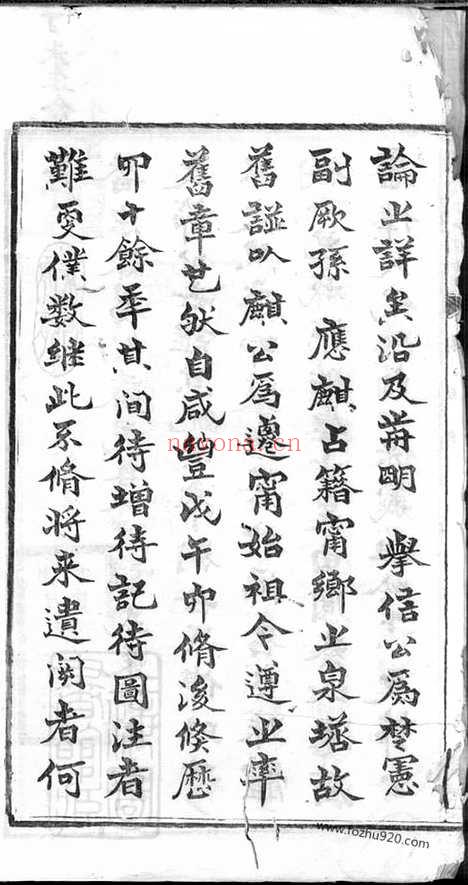 論之詳矣沿及前明 舉信公爲楚憲
副厥孫 應麒占籍甯鄉之泉塘故
舊諡以 麒公爲遷甯始祖今遵之率
舊章也然自咸豐戊午卯脩後倏歷
卯十餘年其間待增待記待圖注者
難更僕数継此不脩將来遺闕者何
nayona.cn
www.fozhu920.com